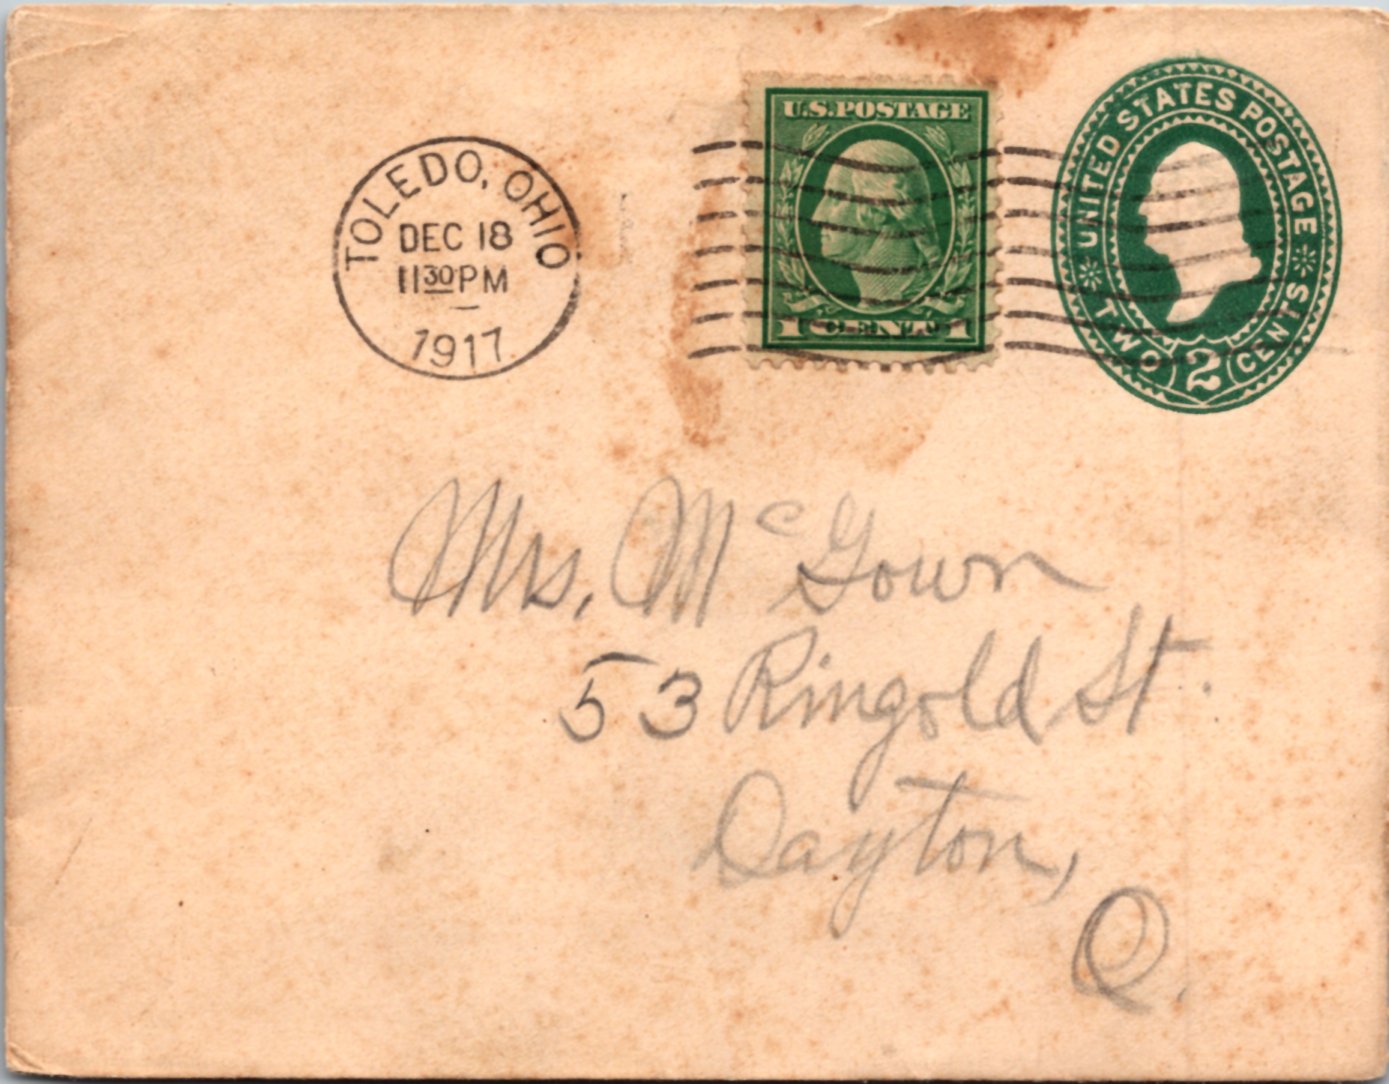 TOLEDO, OHIO
DEC 18
11 30 PM
1917
U.S. POSTAGE
1 CENT 1
UNITED STATES POSTAGE
TWO 2 CENTS
Mrs. Mc Gown
53 Ringold St.
Dayton,
O.